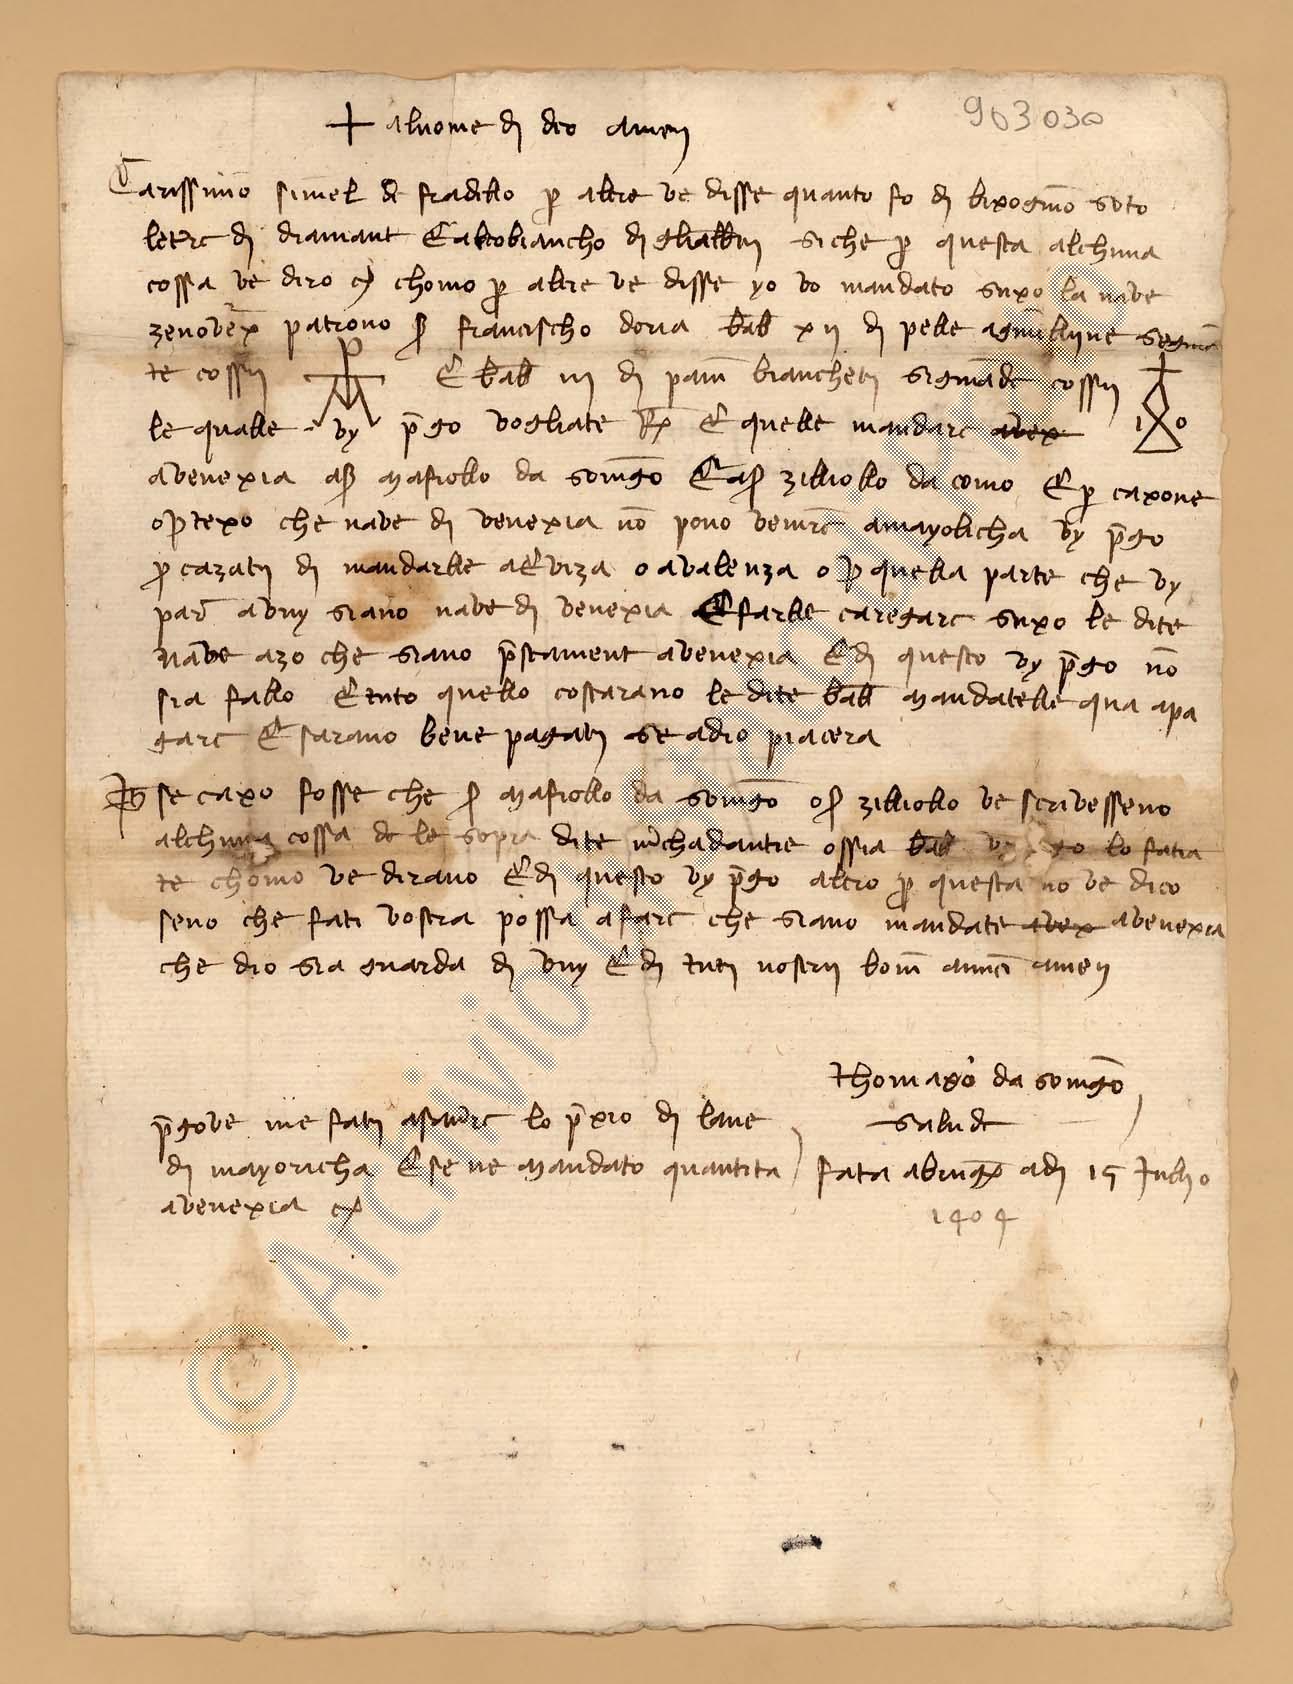 903030
+ al nome di dio amen
Carissimo simel de fradello p altre ve disse quanto fo di bixogno soto
letere di diamant E altobiancho di si che p questa alchuna
cossa ve diro chomo p altre ve disse yo vo mandato suxo la nave
zenovexe patrono s francischo doria bal xii di pelle agnelline segna
te cossi E bal iii di pani biancheti signade cossi 1 0
le qualle vy pgo vogliate E quelle mandare avex
a venexia a s mafiollo da somgo E a s zilliollo da como E p caxone
o p texo che nave di venexia no pono venire a mayolicha vy pgo
p cazati di mandarlle a Eviza o a valenza o p quella parte che vy
par a vuy siano nave di venexia E farlle caregare suxo le dite
nave azo che siano pstament a venexia E di questo vy pgo no
sia fallo E tuto quello costarano le dite bal mandatelle qua a pa
gare E sarano bene pagati se a dio piacera
se caxo fosse che s mafiollo da somgo o s zilliollo ve scrivesseno
alchuna cossa de le sopra dite mchadantie ossia bal vy pgo lo fatia
te chomo ve dirano E di questo vy pgo altro p questa no ve dico
seno che fati vostra possa a fare che siano mandate avex a venexia
che dio sia guarda di vuy E di tuti nostri boni amici amen
Thomaxo da somgo
salude
pgove me fati asavere lo pxio di lane
di mayoricha E se ne mandato quantita
a venexia
fata a brugx adi 15 Julio
1404
© Archivio di Stato di Prato